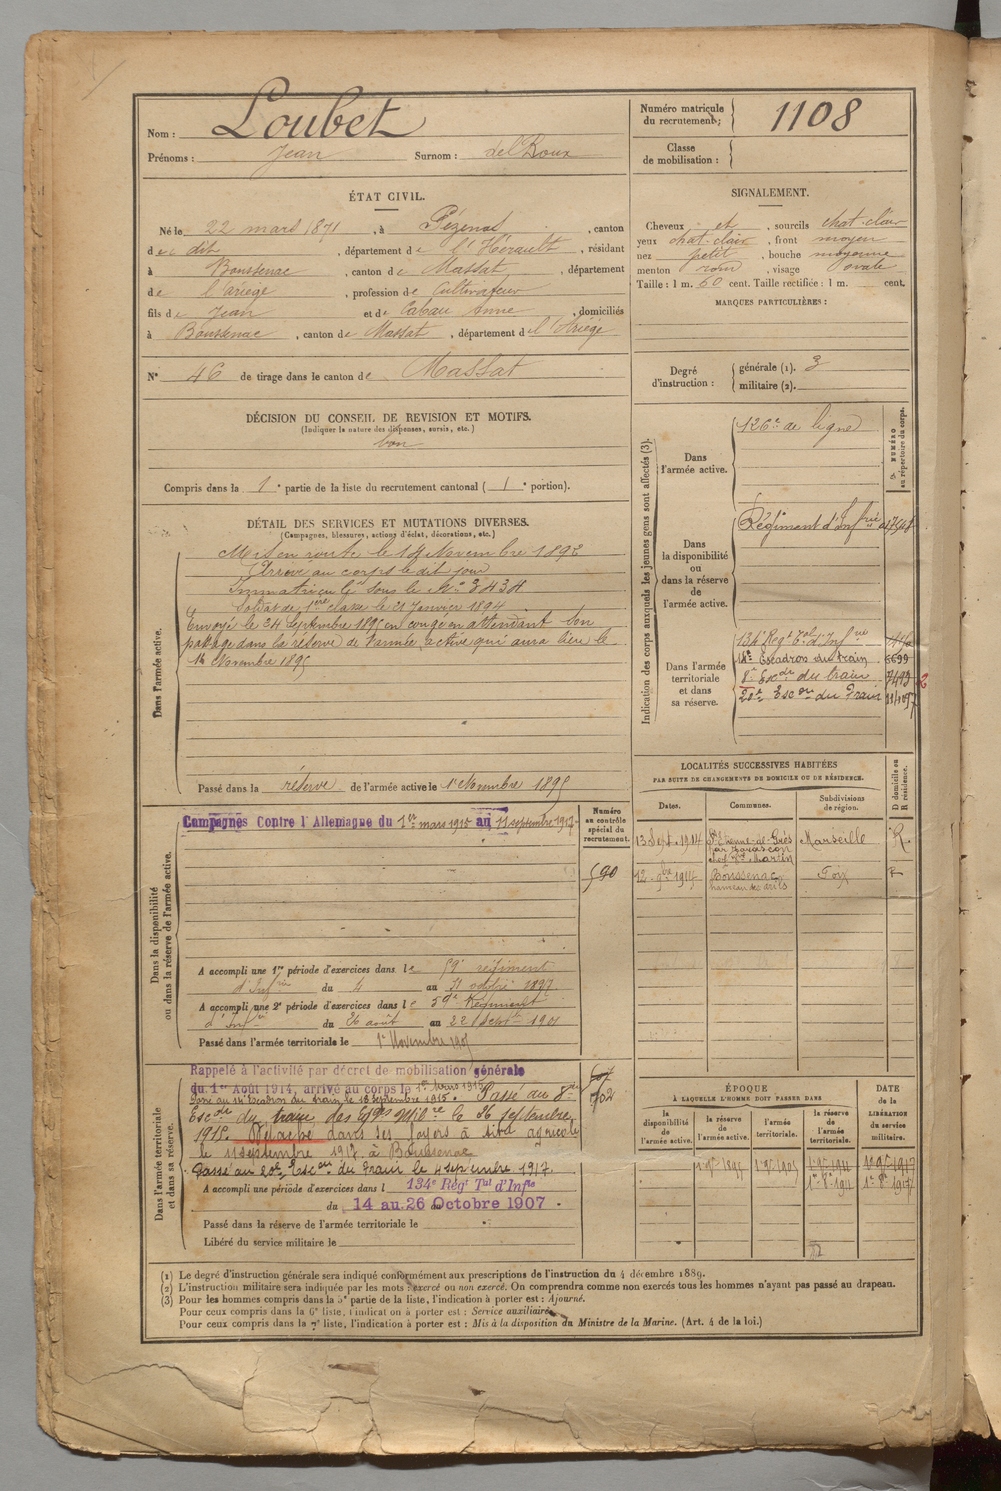 Nom : Loubet
Prénoms : Jean Surnom : del Roux
Numéro matricule du recrutement : 1108
Classe de mobilisation :
ÉTAT CIVIL.
Né le 22 mars 1871, à Pézenas, canton
de dit, département de l'Hérault, résidant
à Boussenac, canton de Massat, département
de l'ariège, profession de Cultivateur
fils de Jean et de Cabau Anne, domiciliés
à Boussenac, canton de Massat, département de l'Ariège
N° 46 de tirage dans le canton de Massat
SIGNALEMENT.
Cheveux et, sourcils chat-clair
yeux chat-clair, front moyen
nez petit, bouche moyenne
menton rond, visage ovale
Taille : 1 m. 60 cent. Taille rectifiée : 1 m. cent.
MARQUES PARTICULIÈRES :
Degré d'instruction : générale (1). 3
militaire (2).
DÉCISION DU CONSEIL DE REVISION ET MOTIFS.
(Indiquer la nature des dispenses, sursis, etc.)
bon
Compris dans la 1e partie de la liste du recrutement cantonal (1e portion).
DÉTAIL DES SERVICES ET MUTATIONS DIVERSES.
(Campagnes, blessures, actions d'éclat, décorations, etc.)
Dans l'armée active.
Mis en route le 14 Novembre 1892
Arrivé au corps le dit jour
Immatriculé sous le N° 3434
Soldat de 1ère classe le 21 Janvier 1894
Envoyé le 24 Septembre 1895 en congé en attendant son
passage dans la réserve de l'armée active qui aura lieu le
1er Novembre 1895
Passé dans la réserve de l'armée active le 1er Novembre 1895
Indication des corps auxquels les jeunes gens sont affectés (3).
NUMÉRO au répertoire du corps.
Dans l'armée active.
126e de ligne
Dans la disponibilité ou dans la réserve de l'armée active.
Régiment d'Infrie
Dans l'armée territoriale et dans sa réserve.
134e Régt Tal d'Infrie
18e Escadron du train
8e Escon du train 7493
20e Escon du Train
LOCALITÉS SUCCESSIVES HABITÉES
PAR SUITE DE CHANGEMENTS DE DOMICILE OU DE RÉSIDENCE.
D domicile ou R résidence.
Dates. Communes. Subdivisions de région.
13 Sept. 1914 St Etienne-du-Grès par Tarascon Marseille R.
12 9bre 1917 Boussenac Foix R
Dans la disponibilité ou dans la réserve de l'armée active.
Numéro au contrôle spécial du recrutement.
Campagnes Contre l'Allemagne du 1er mars 1915 au 11 septembre 1917
590
A accompli une 1re période d'exercices dans le 59e régiment
d'Infrie du 4 au 31 octobre 1897
A accompli une 2e période d'exercices dans le 59e Régiment
d'Infie du 26 août au 22 Septbre 1901
Passé dans l'armée territoriale le 1er Novembre 1905
Dans l'armée territoriale et dans sa réserve.
Rappelé à l'activité par décret de mobilisation générale
du 1er Août 1914, arrivé au corps le 1er Mars 1915
Passé au 18e Escadron du train, le 18 septembre 1915. Passé au 8e
Escon du train des Eqges Milres le 26 septembre
1915. Détaché dans ses foyers à titre agricole
le 11 septembre 1917 à Boussenac
Passé au 20e Escon du Train le 4 septembre 1917.
A accompli une période d'exercices dans l 134e Régt Tal d'Infie
du 14 au 26 Octobre 1907
Passé dans la réserve de l'armée territoriale le
Libéré du service militaire le
ÉPOQUE
À LAQUELLE L'HOMME DOIT PASSER DANS
la disponibilité de l'armée active. la réserve de l'armée active. l'armée territoriale. la réserve de l'armée territoriale.
DATE de la LIBÉRATION du service militaire.
1er 9bre 1895 1er 9bre 1905 1er 9bre 1911 1er 9bre 1917
(1) Le degré d'instruction générale sera indiqué conformément aux prescriptions de l'instruction du 4 décembre 1889.
(2) L'instruction militaire sera indiquée par les mots : exercé ou non exercé. On comprendra comme non exercés tous les hommes n'ayant pas passé au drapeau.
(3) Pour les hommes compris dans la 5e partie de la liste, l'indication à porter est : Ajourné.
Pour ceux compris dans la 6e liste, l'indication à porter est : Service auxiliaire.
Pour ceux compris dans la 7e liste, l'indication à porter est : Mis à la disposition du Ministre de la Marine. (Art. 4 de la loi.)